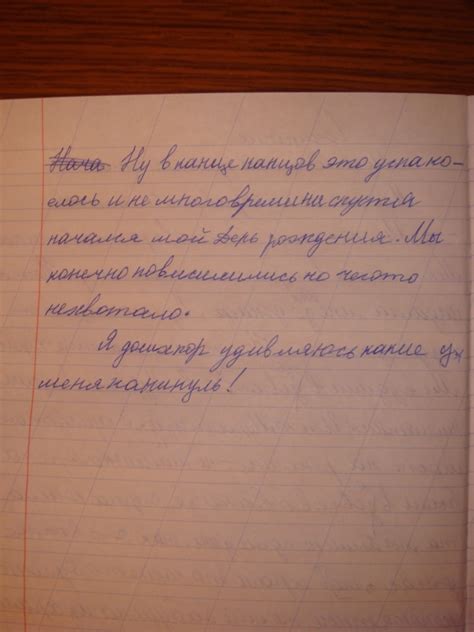 Нача Ну в канце канцов это успако-
елось и не многовремини спустя
начался мой День рождения. Мы
конечно повисилились но чегото
нехватало.
Я досихпор удивляюсь какие у
меня каникуль!